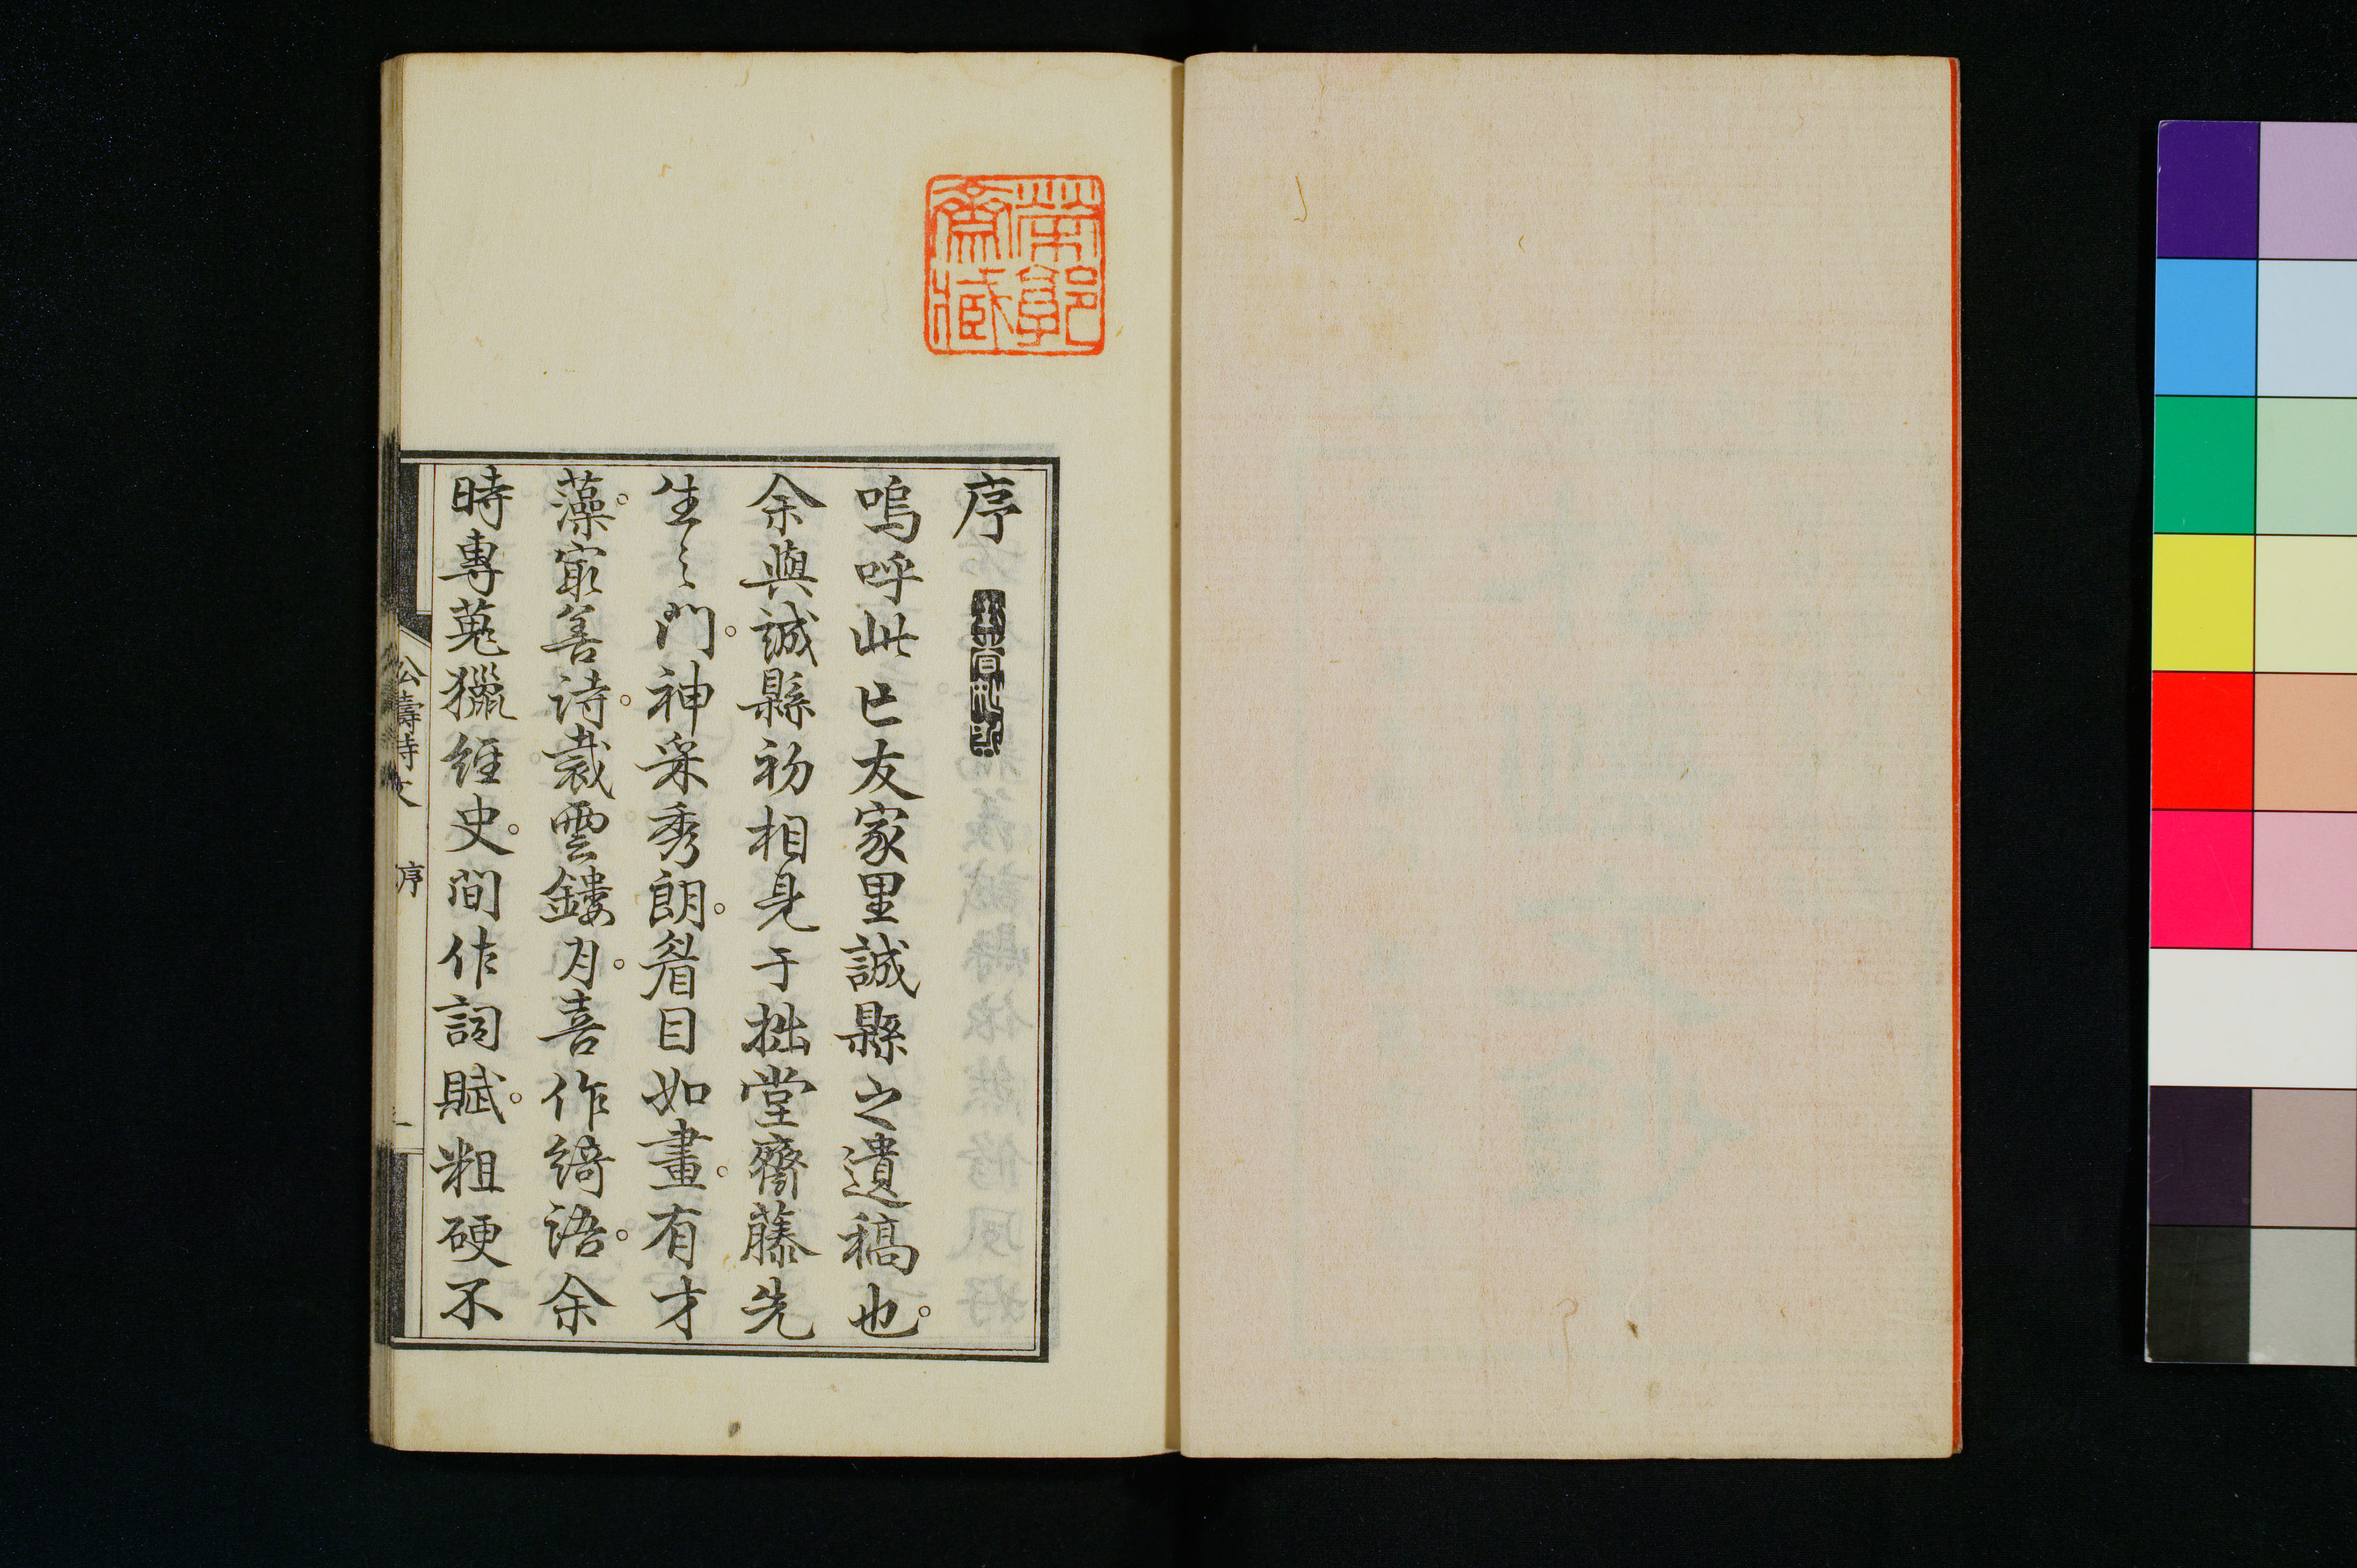 序
嗚呼此亡友家里誠縣之遺稿也。
余與誠縣初相見于拙堂齋藤先
生之門。神采秀朗。眉目如畫。有才
藻。最善詩。裁雲鏤月。喜作綺語。余
時專蒐獵經史。間作詞賦。粗硬不
公壽詩文 序 一